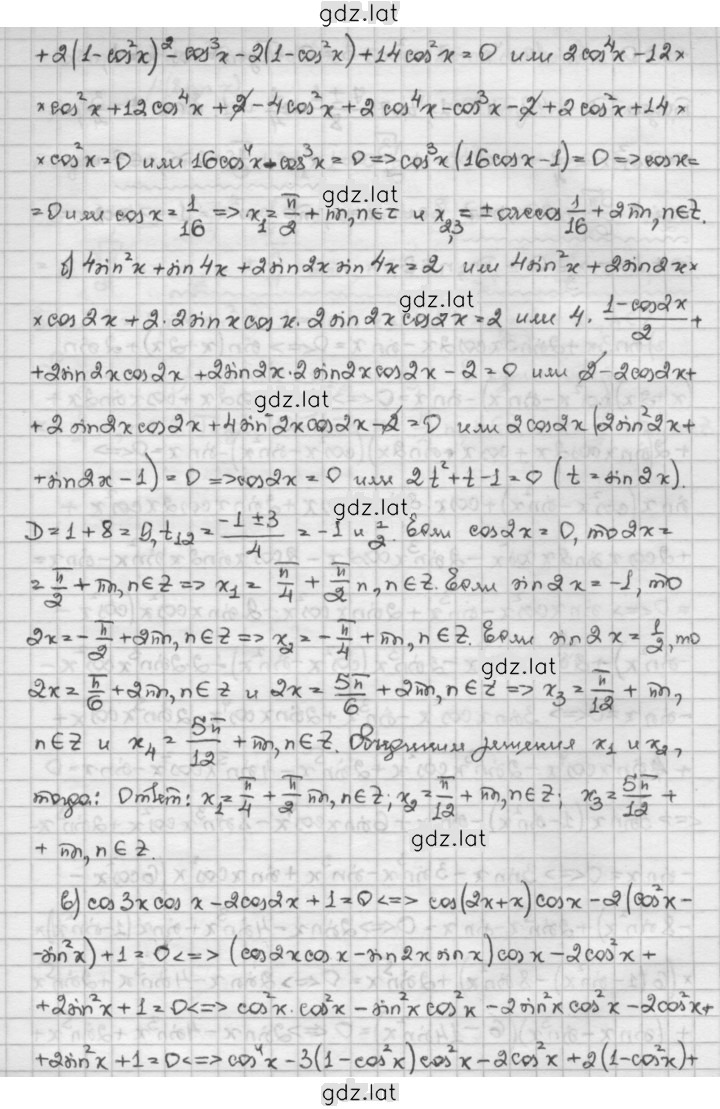 gdz.lat
+2(1-cos²x)²-cos³x-2(1-cos²x)+14cos²x=0 или 2cos⁴x-12×
×cos²x+12cos⁴x+2-4cos²x+2cos⁴x-cos³x-2+2cos²x+14×
×cos²x=0 или 16cos⁴x-cos³x=0=>cos³x(16cosx-1)=0=>cosx=
gdz.lat
=0 или cosx=1/16 => x₁=π/2+πn,n∈Z и x₂,₃=±arccos 1/16+2πn,n∈Z.
б) 4sin²x+sin4x+2sin2x sin4x=2 или 4sin²x+2sin2x×
gdz.lat
×cos2x+2·2sinxcosx·2sin2xcos2x=2 или 4·(1-cos2x)/2+
+2sin2xcos2x+2sin2x·2sin2xcos2x-2=0 или 2-2cos2x+
gdz.lat
+2sin2xcos2x+4sin²2xcos2x-2=0 или 2cos2x(2sin²2x+
+sin2x-1)=0=>cos2x=0 или 2t²+t-1=0 (t=sin2x).
gdz.lat
D=1+8=9,t₁₂=(-1±3)/4=-1 и 1/2. Если cos2x=0, то 2x=
=π/2+πn,n∈Z=>x₁=π/4+π/2n,n∈Z. Если sin2x=-1, то
2x=-π/2+2πn,n∈Z=>x₂=-π/4+πn,n∈Z. Если sin2x=1/2, то
gdz.lat
2x=π/6+2πn,n∈Z и 2x=5π/6+2πn,n∈Z=>x₃=π/12+πn,
n∈Z и x₄=5π/12+πn,n∈Z. Объединим решения x₁ и x₂,
тогда: Ответ: x₁=π/4+π/2πn,n∈Z; x₂=π/12+πn,n∈Z; x₃=5π/12+
gdz.lat
+πn,n∈Z.
в) cos3xcosx-2cos2x+1=0<=>cos(2x+x)cosx-2(cos²x-
-sin²x)+1=0<=>(cos2xcosx-sin2xsinx)cosx-2cos²x+
+2sin²x+1=0<=>cos²x·cos²x-sin²xcos²x-2sin²xcos²x-2cos²x+
+2sin²x+1=0<=>cos⁴x-3(1-cos²x)cos²x-2cos²x+2(1-cos²x)+
gdz.lat